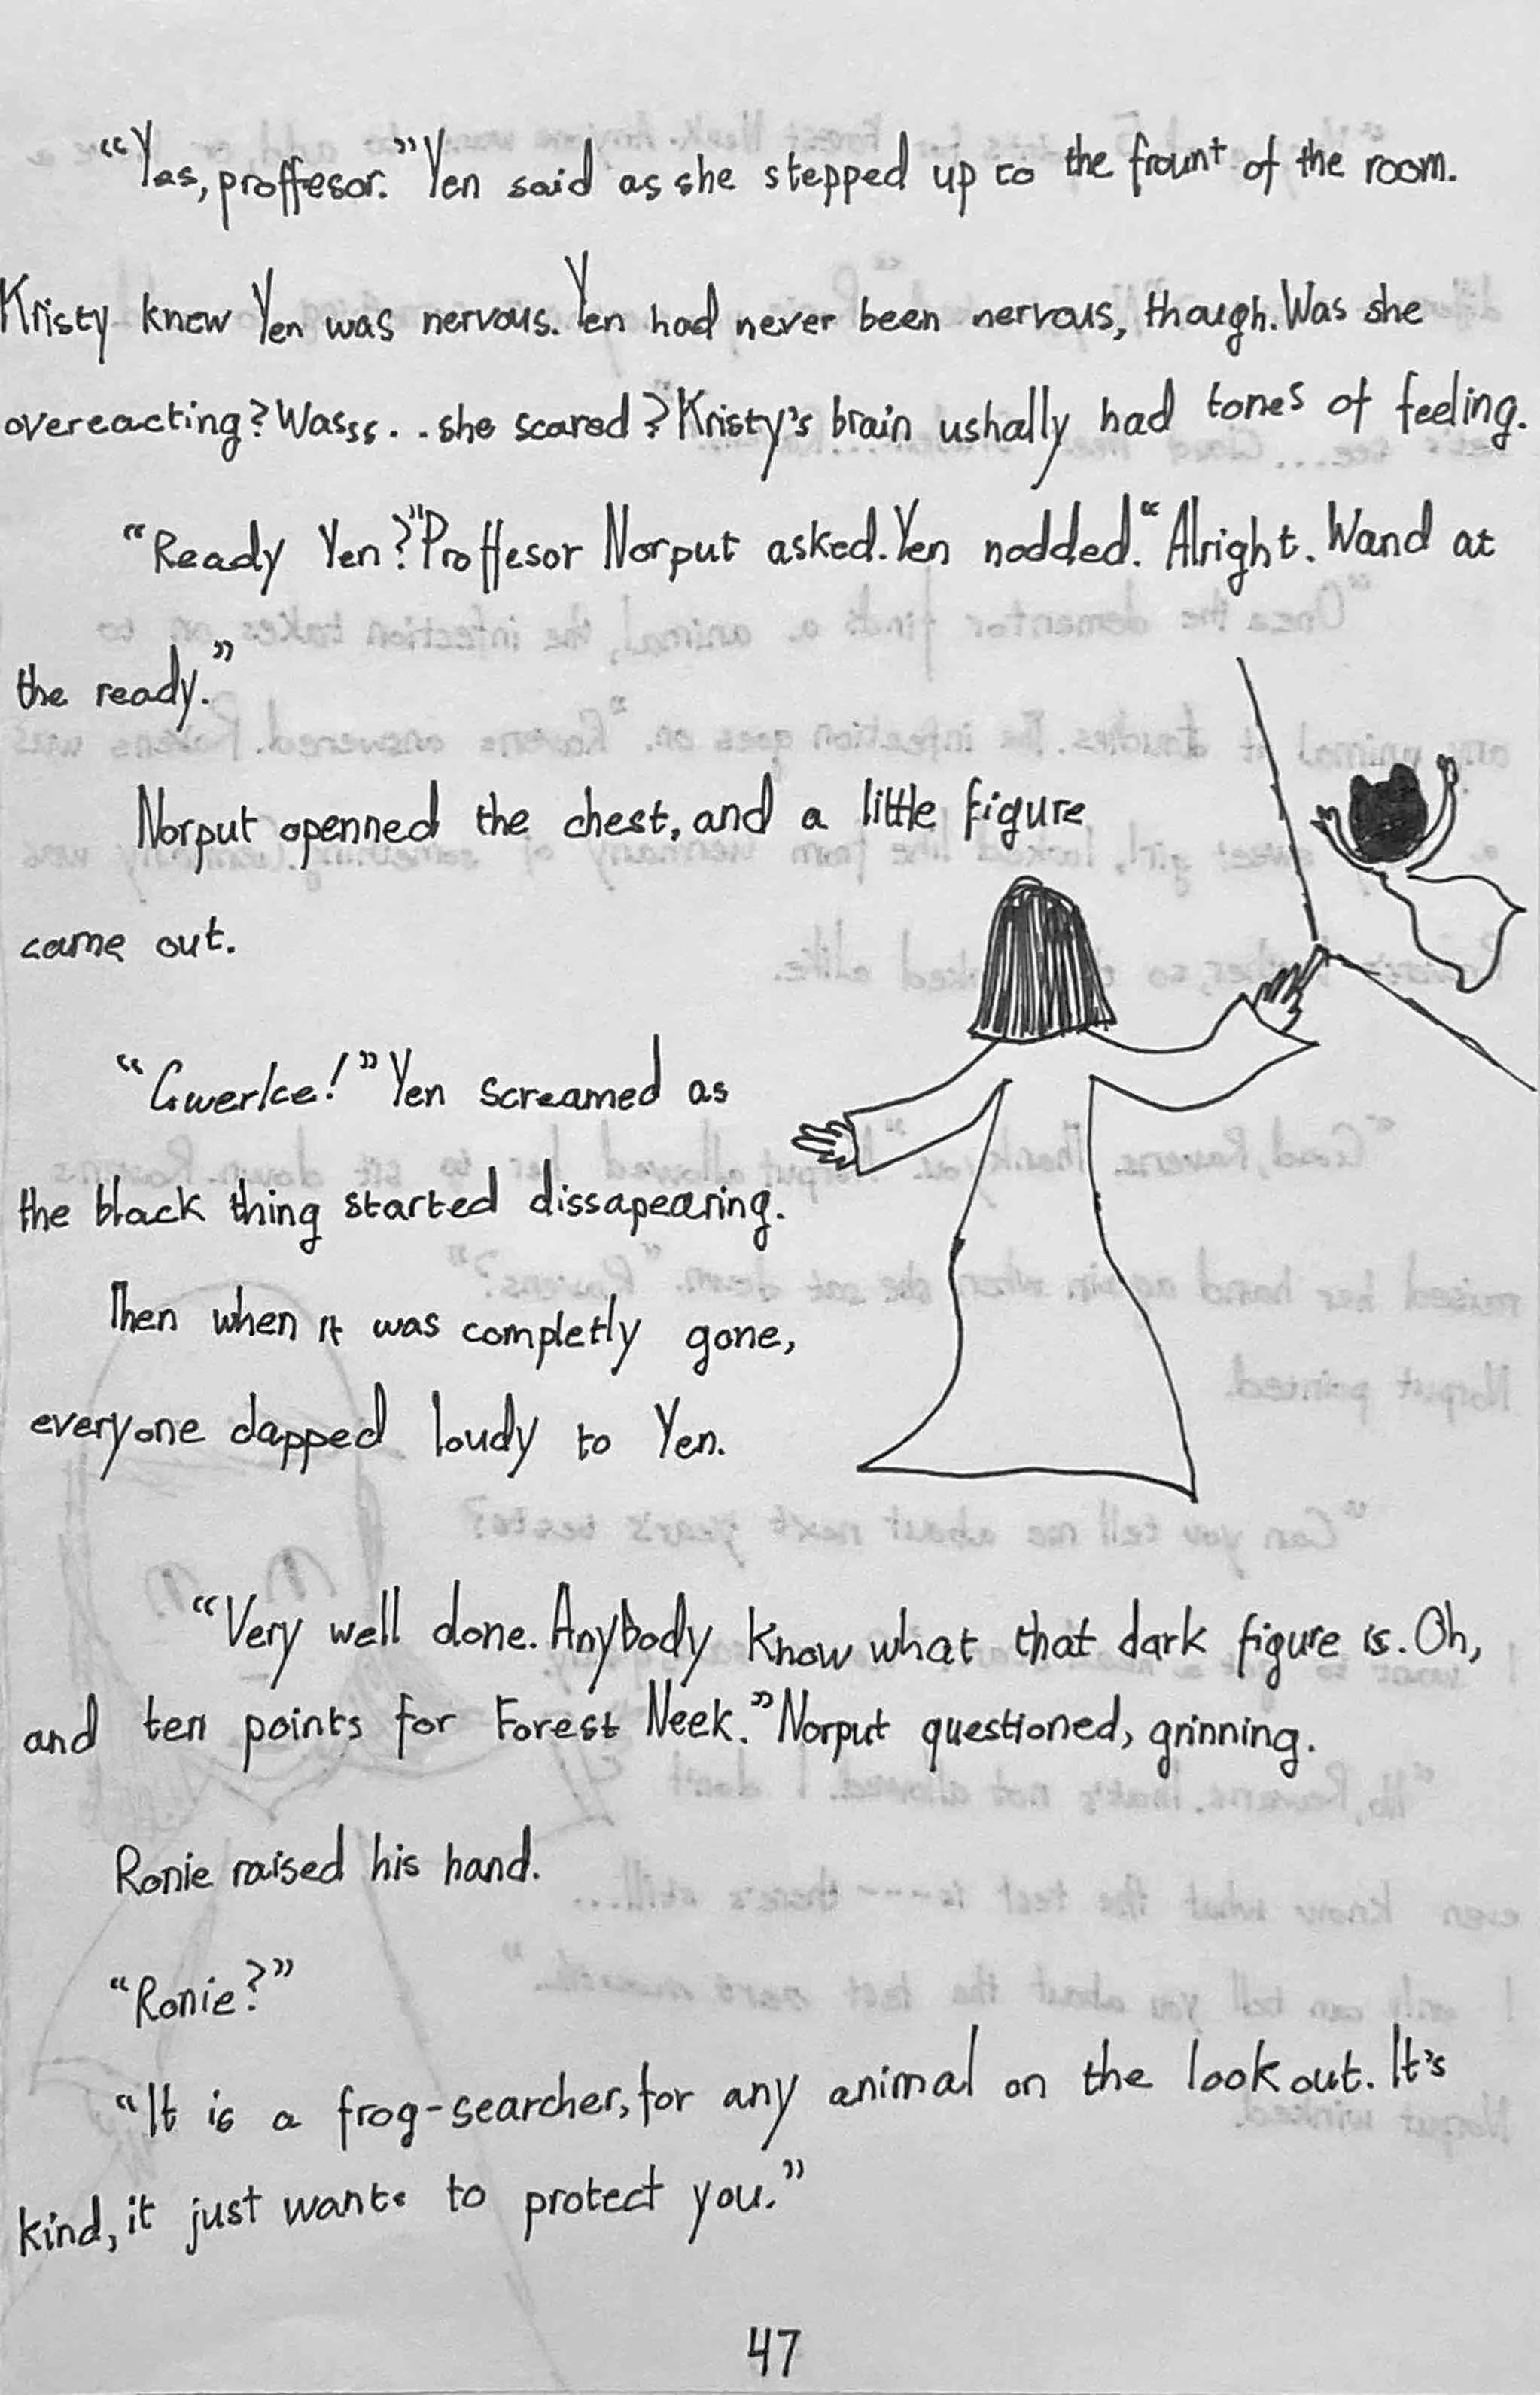 “Yes, proffesor.” Yen said as she stepped up to the frount of the room.
Kristy knew Yen was nervous. Yen had never been nervous, though. Was she
overeacting? Wasss... she scared? Kristy's brain ushally had tones of feeling.
“Ready Yen?” Proffesor Norput asked. Yen nodded. “Alright. Wand at
the ready.”
Norput openned the chest, and a little figure
came out.
“Gwerkce!” Yen screamed as
the black thing started dissapearing.
Then when it was completly gone,
everyone clapped loudy to Yen.
“Very well done. Anybody know what that dark figure is. Oh,
and ten points for Forest Neek.” Norput questioned, grinning.
Ronie raised his hand.
“Ronie?”
“It is a frog-searcher, for any animal on the look out. It's
kind, it just wants to protect you.”
47